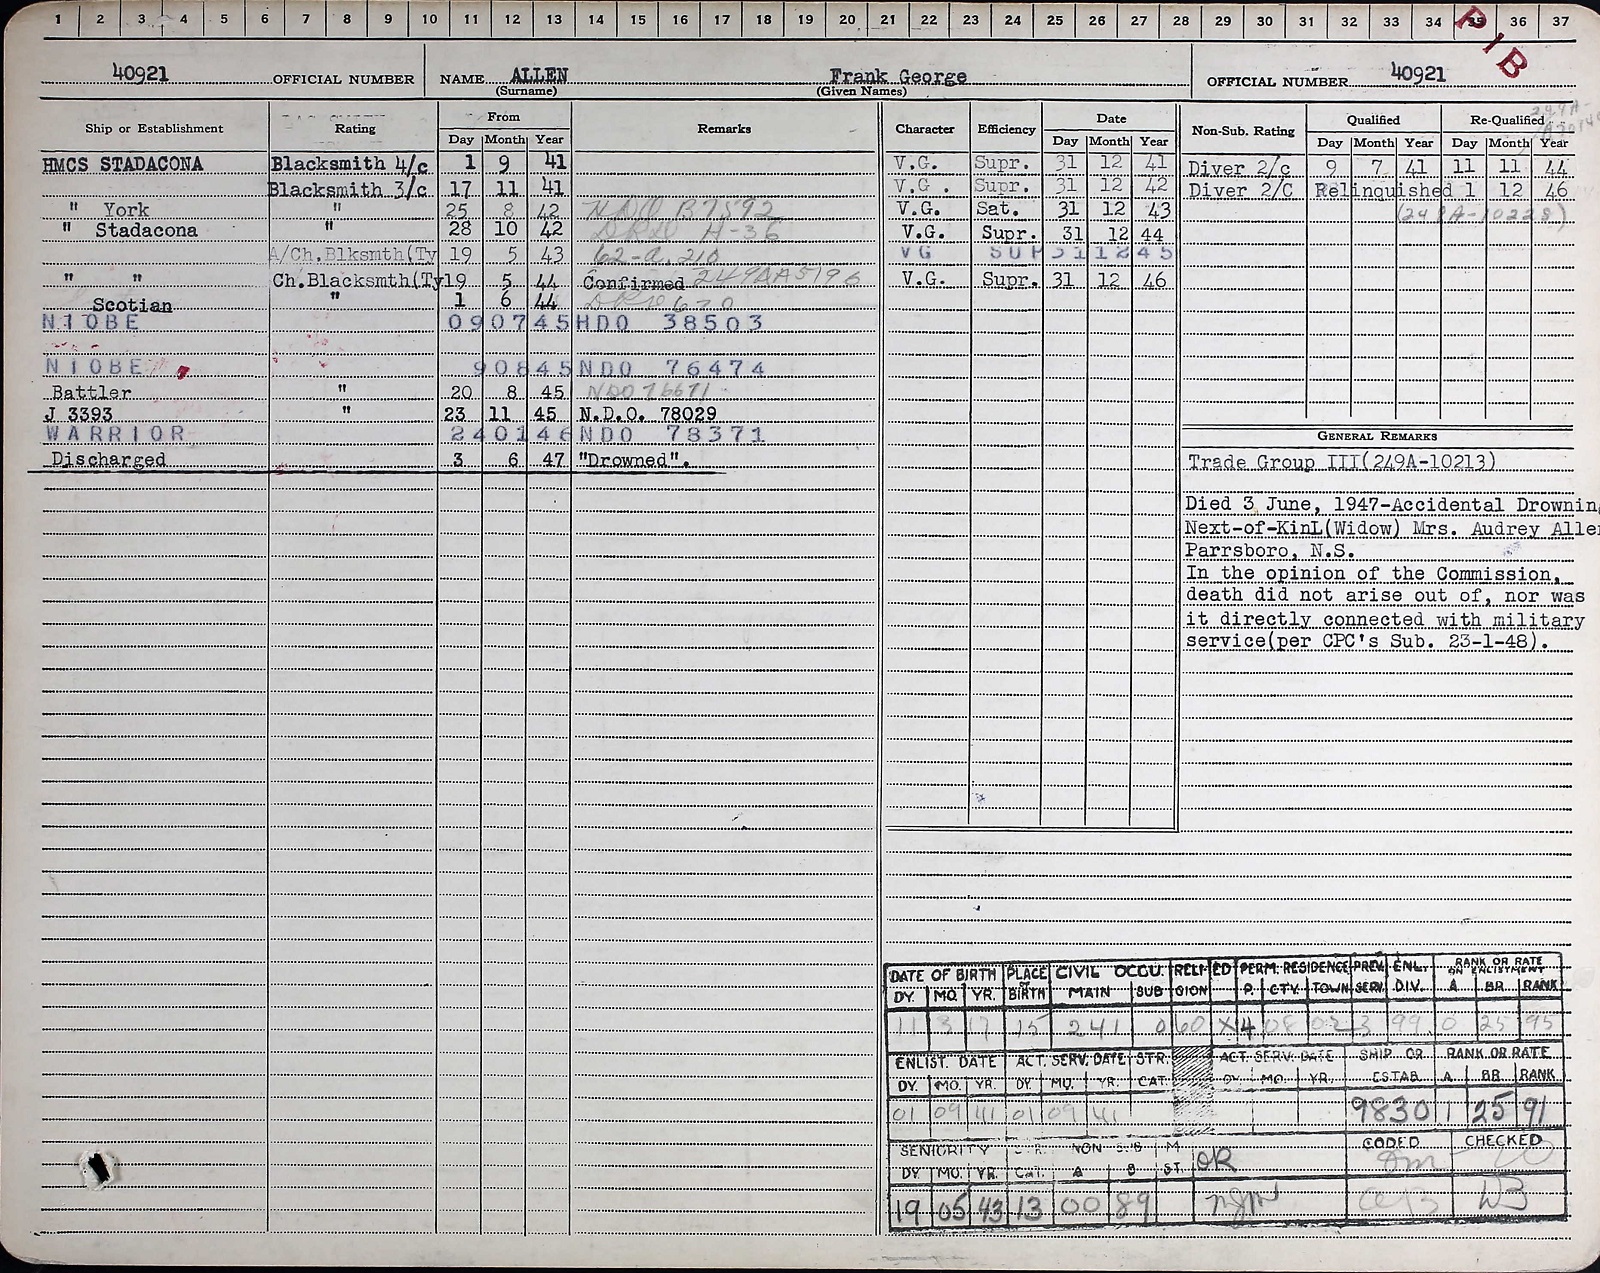 1 2 3 4 5 6 7 8 9 10 11 12 13 14 15 16 17 18 19 20 21 22 23 24 25 26 27 28 29 30 31 32 33 34 35 36 37
PIB
40921 OFFICIAL NUMBER NAME ALLEN Frank George OFFICIAL NUMBER 40921
(Surname) (Given Names)
Ship or Establishment Rating From Remarks
Day Month Year
HMCS STADACONA Blacksmith 4/c 1 9 41
Blacksmith 3/c 17 11 41
" York " 25 8 42 HDO B7592
" Stadacona " 28 10 42 H-36
A/Ch.Blksmth(Ty 19 5 43 62-a.210
" " Ch.Blacksmth(Ty 19 5 44 Confirmed 249AA5196
Scotian " 1 6 44 670
NIOBE 090745 HDO 38503
NIOBE 90845 NDO 76474
Battler " 20 8 45 NDO 76671
J 3393 " 23 11 45 N.D.O. 78029
WARRIOR 240146 NDO 78371
Discharged 3 6 47 "Drowned".
Character Efficiency Date
Day Month Year
V.G. Supr. 31 12 41
V.G. Supr. 31 12 42
V.G. Sat. 31 12 43
V.G. Supr. 31 12 44
VG SUP 311245
V.G. Supr. 31 12 46
Non-Sub. Rating Qualified Re-Qualified
Day Month Year Day Month Year
Diver 2/c 9 7 41 11 11 44
Diver 2/C Relinquished 1 12 46
(248A-10228)
GENERAL REMARKS
Trade Group III(249A-10213)
Died 3 June, 1947-Accidental Drownin
Next-of-KinL(Widow) Mrs. Audrey Alle
Parrsboro, N.S.
In the opinion of the Commission,
death did not arise out of, nor was
it directly connected with military
service(per CPC's Sub. 23-1-48).
DATE OF BIRTH PLACE OF BIRTH CIVIL OCCU. RELIGION ED PERM. RESIDENCE PREV. SERV. ENL. DIV. RANK OR RATE ON ENLISTMENT
DY. MO. YR. MAIN SUB P. CTY. TOWN A BR. RANK
11 3 17 15 241 0 60 X 4 08 02 3 99 0 25 95
ENLIST. DATE ACT. SERV. DATE STR. ACT. SERV. DATE SHIP OR RANK OR RATE
DY. MO. YR. DY. MO. YR. CAT. DY. MO. YR. ESTAB. A BR. RANK
01 09 41 01 09 41 9830 1 25 91
SENIORITY STR. NON SUB M OR CODED CHECKED
DY. MO. YR. CAT. A B ST.
19 05 43 13 00 89 WB